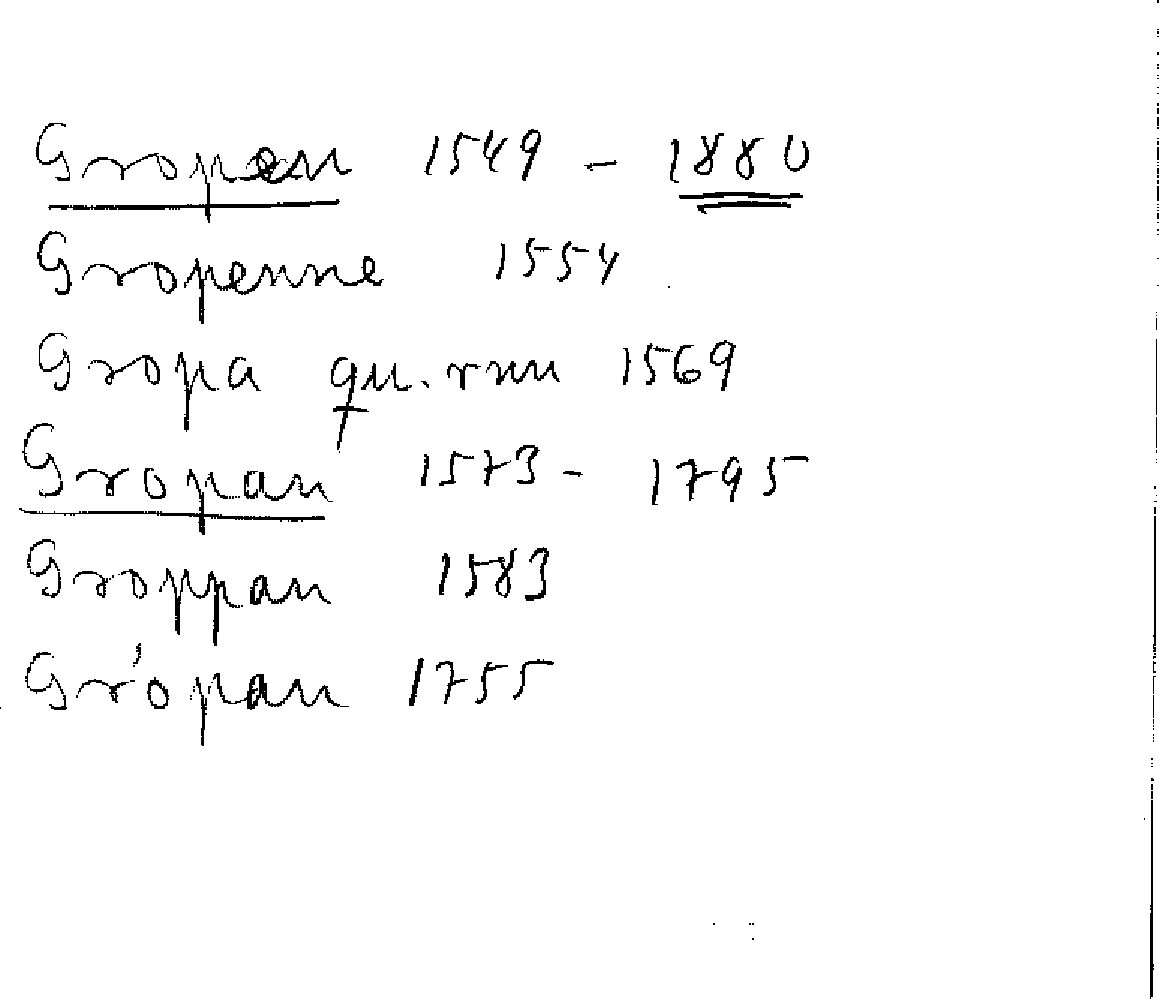 Gropen 1549 - 1880
Gropenne 1554
Gropa qu. rnn 1569
Gropan 1573 - 1795
Groppan 1583
Grópan 1755